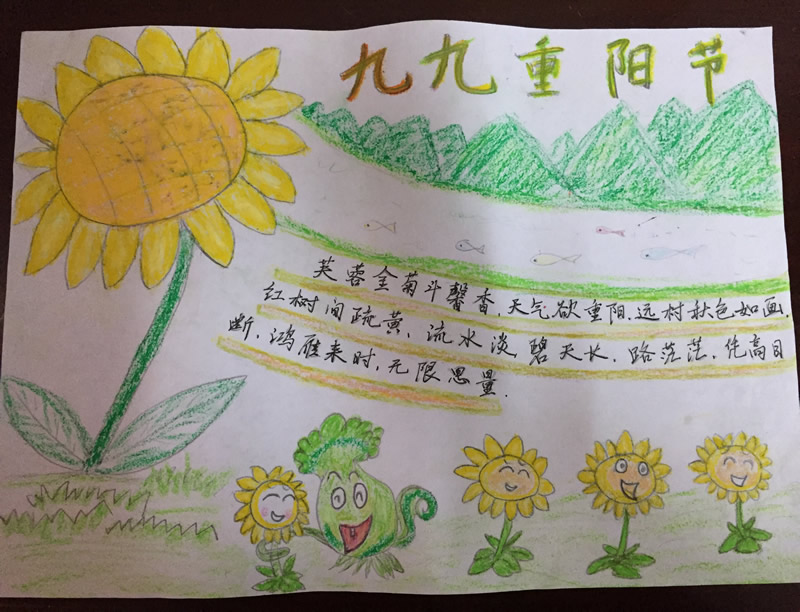 九九重阳节
芙蓉金菊斗馨香,天气欲重阳.远村秋色如画,
红树间疏黄、流水淡碧天长.路茫茫,凭高目
断.鸿雁来时,无限思量.